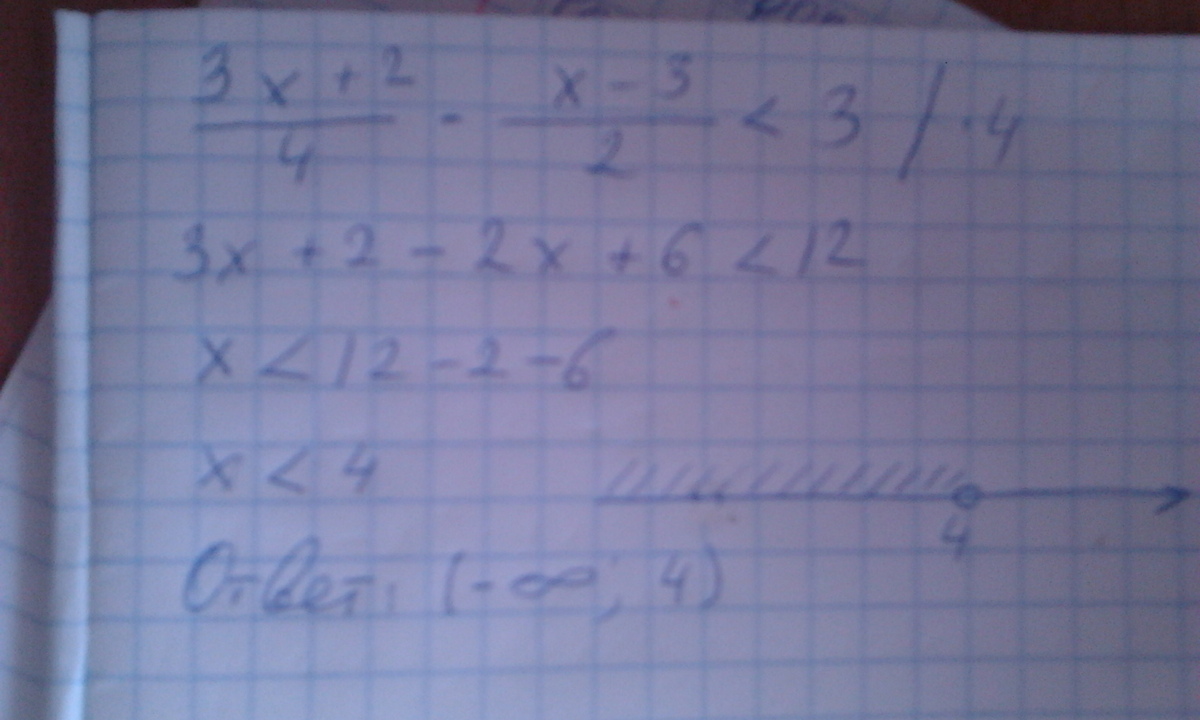 (3x + 2)/4 - (x - 3)/2 < 3 / · 4
3x + 2 - 2x + 6 < 12
x < 12 - 2 - 6
x < 4
4
Ответ: (-∞; 4)